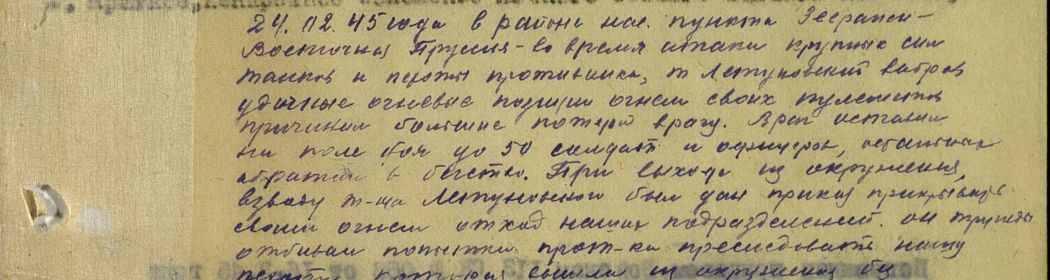 24.02.45 года в районе нас. пункта
Восточная Пруссия - во время атаки крупных сил
танков и пехоты противника, т. Летуновский выбрав
удачные огневые позиции огнем своих пулеметов
причинил большие потери врагу. Враг оставил
на поле боя до 50 солдат и офицеров, остальных
обратил в бегство. При выходе из окружения,
взводу т-ща Летуновского был дан приказ прикрывать
своим огнем отход наших подразделений. он трижды
отбивал попытки прот-ка преследовать нашу
пехоту, которая вышла из окружения без